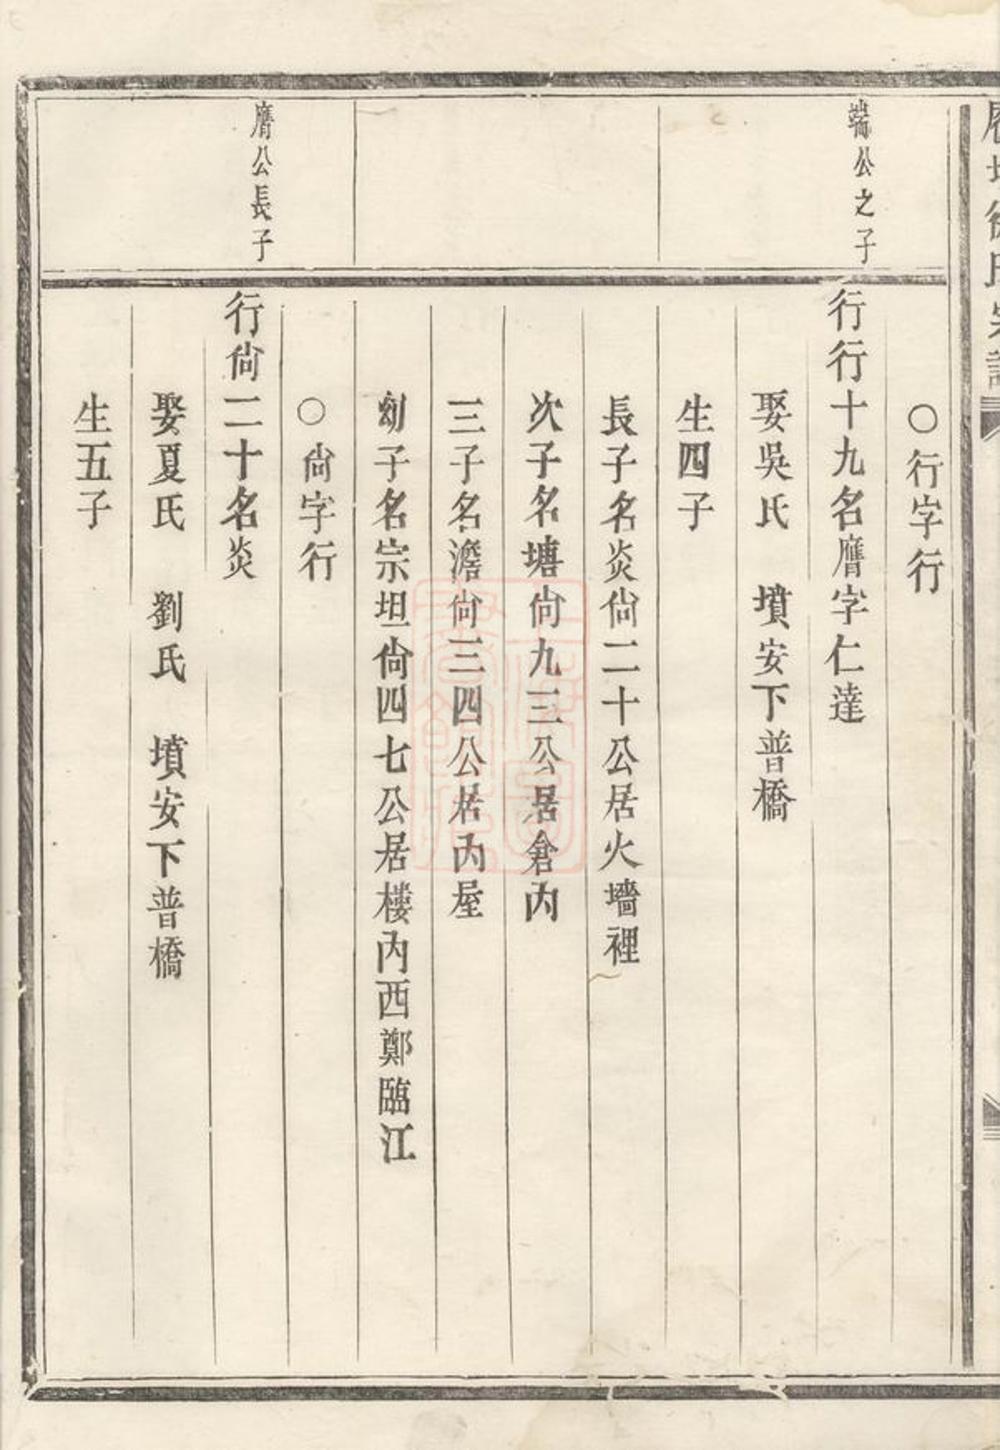 徐氏宗譜
端公之子
○行字行
行行十九名膺字仁達
娶吳氏　墳安下普橋
生四子
長子名炎尙二十公居火墻裡
次子名塘尙九三公居倉內
三子名澹尙三四公居內屋
幼子名宗坦尙四七公居樓內西鄭臨江
○尙字行
膺公長子
行尙二十名炎
娶夏氏　劉氏　墳安下普橋
生五子